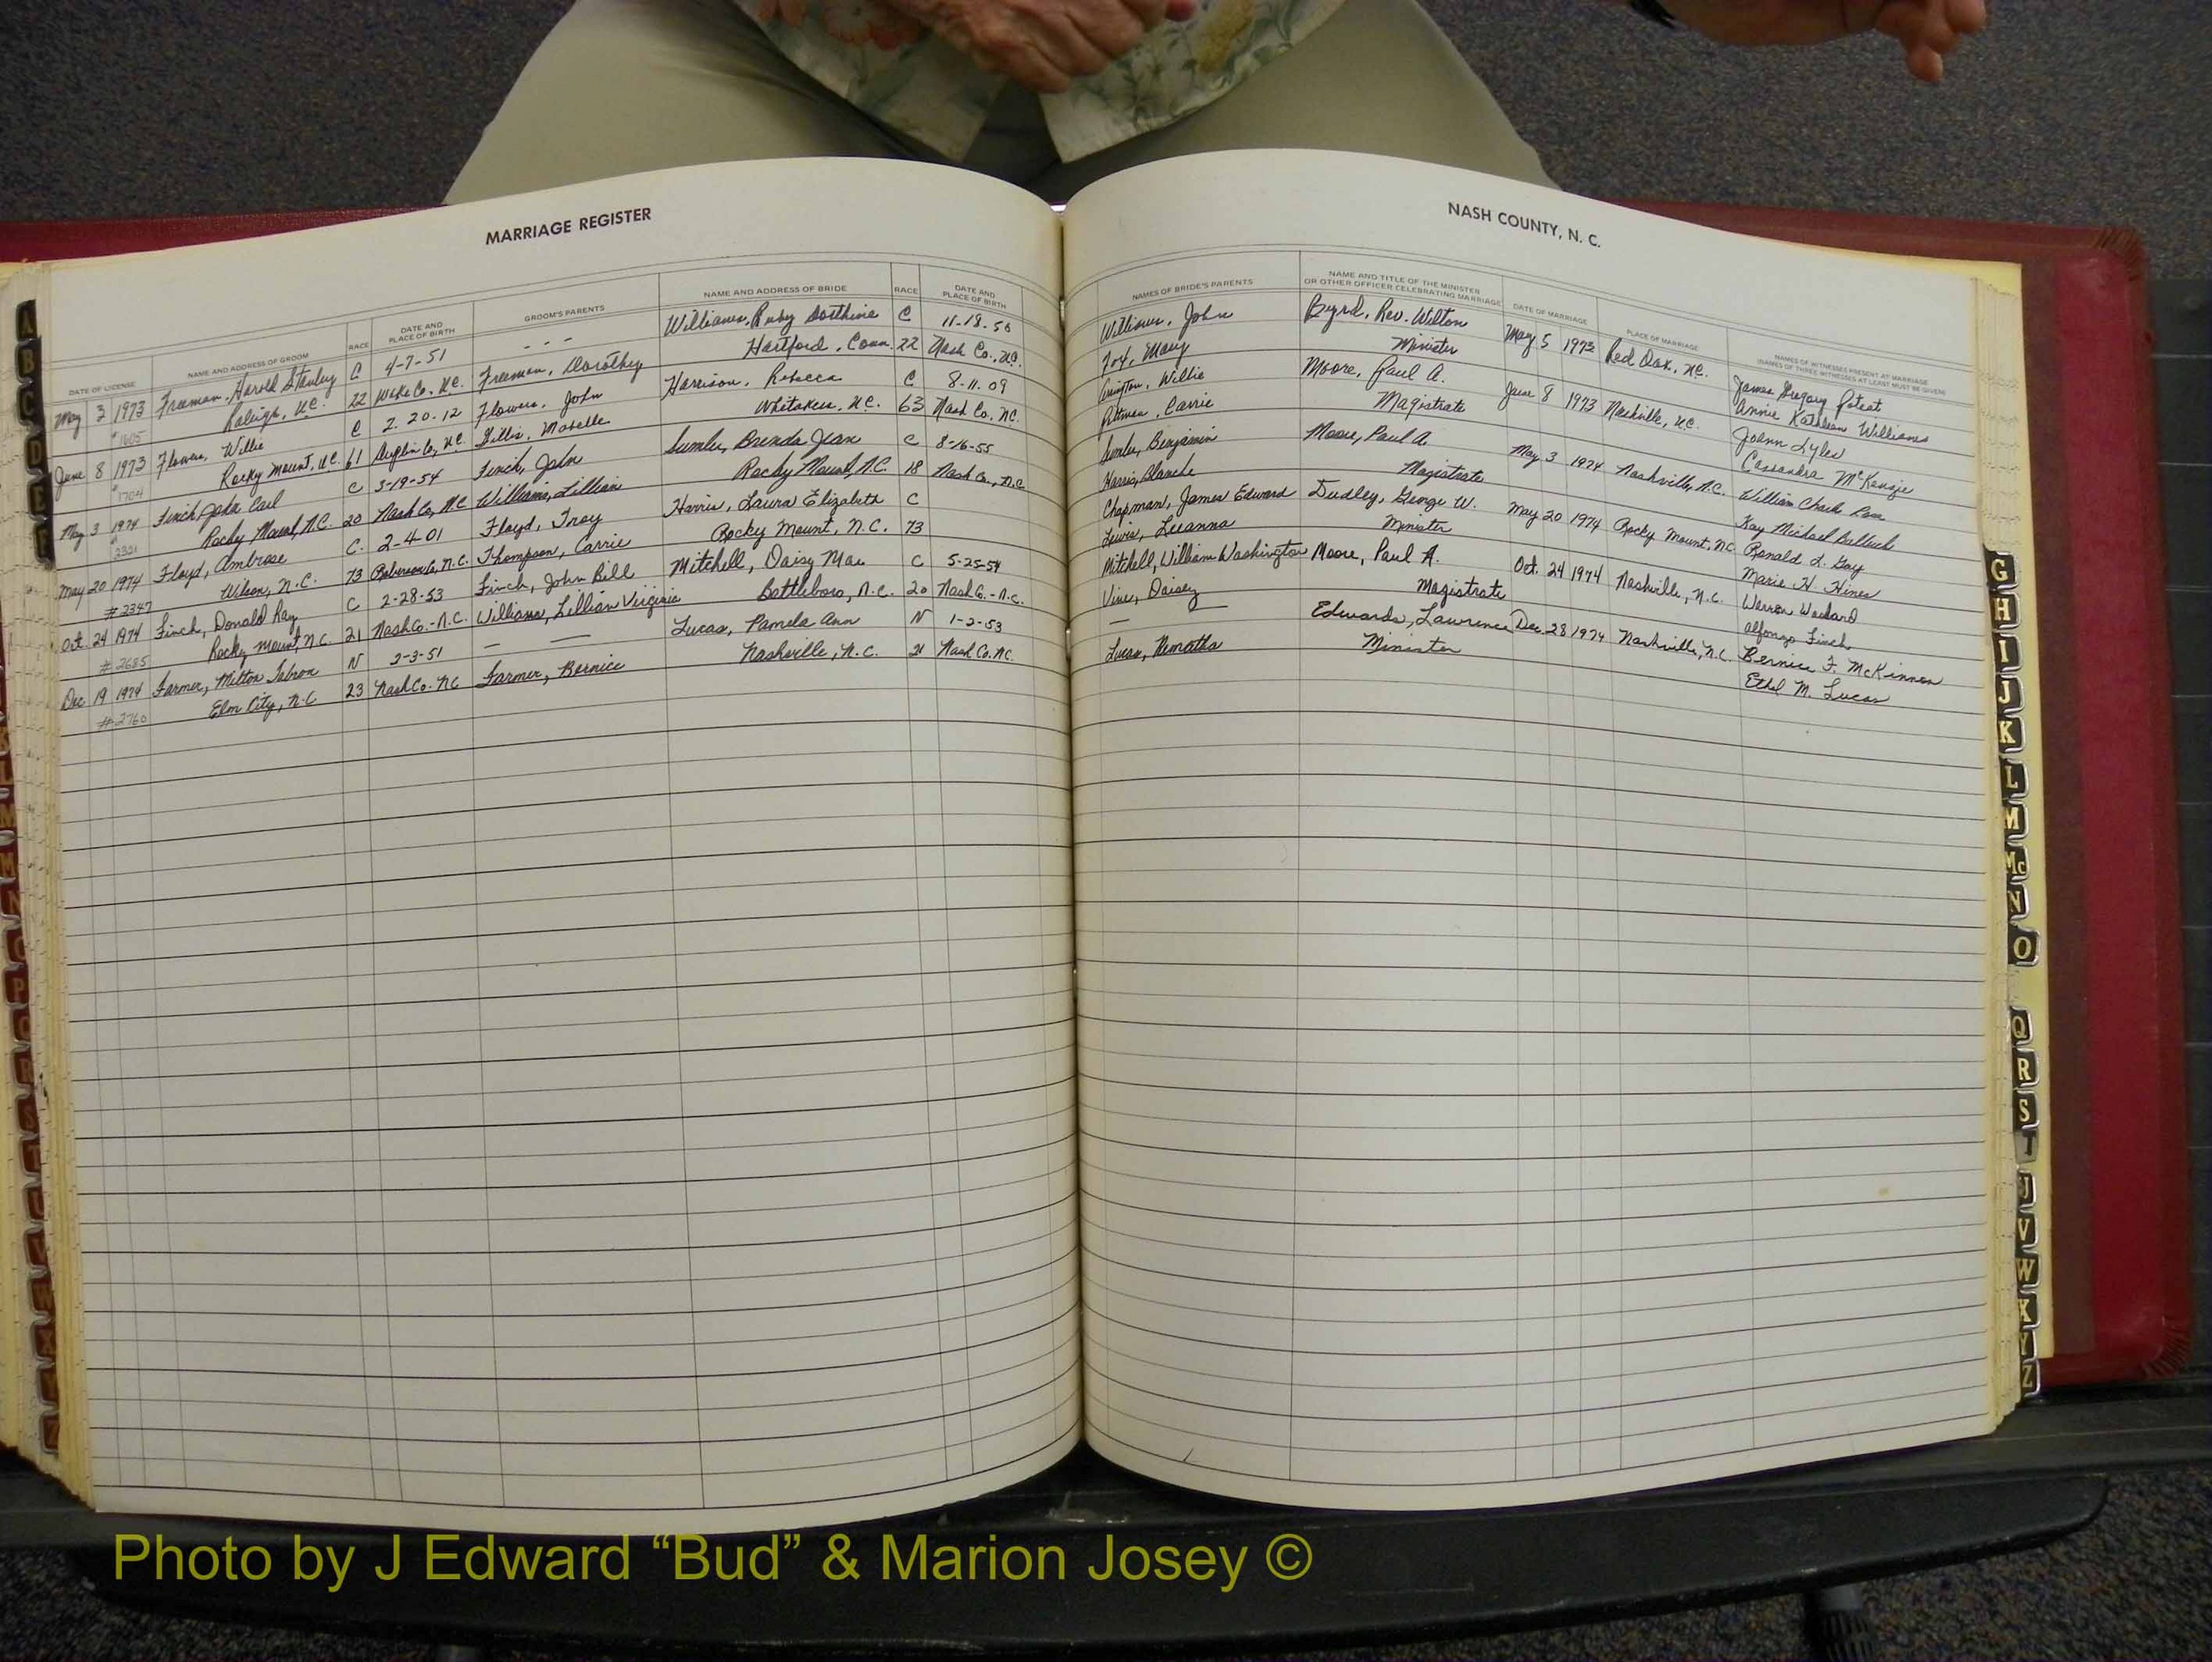 MARRIAGE REGISTER
DATE OF LICENSE NAME AND ADDRESS OF GROOM RACE DATE AND PLACE OF BIRTH GROOM'S PARENTS NAME AND ADDRESS OF BRIDE RACE DATE AND PLACE OF BIRTH
May 3 1973 Freeman, Harold Stanley C 4-7-51 - - - Williams, Ruby Dorthine C 11-18-50
Raleigh, N.C. 22 Wake Co., N.C. Freeman, Dorothy Hartford, Conn. 22 Nash Co., N.C.
June 8 1973 Flowers, Willie C 2-20-12 Flowers, John Harrison, Rebecca C 8-11-09
#1704 Rocky Mount, N.C. 61 Duplin Co., N.C. Gillis, Mabelle Whitakers, N.C. 63 Nash Co., N.C.
May 3 1974 Finch, John Earl C 3-19-54 Finch, John Sumler, Brenda Jean C 8-16-55
Rocky Mount, N.C. 20 Nash Co., N.C. Williams, Lillian Rocky Mount, N.C. 18 Nash Co., N.C.
May 20 1974 Floyd, Ambrose C. 2-4-01 Floyd, Troy Harris, Laura Elizabeth C
#2347 Wilson, N.C. 73 Robeson Co, N.C. Thompson, Carrie Rocky Mount, N.C. 73
Oct. 24 1974 Finch, Donald Ray C 2-28-53 Finch, John Bill Mitchell, Daisy Mae C 5-25-54
#2685 Rocky Mount, N.C. 21 Nash Co.-N.C. Williams, Lillian Virginia Battleboro, N.C. 20 Nash Co.-N.C.
Dec 19 1974 Farmer, Milton N 3-3-51 — — Lucas, Pamela Ann N 1-2-53
#2760 Elm City, N.C. 23 Nash Co. NC Farmer, Bernice Nashville, N.C. 21 Nash Co. N.C.
NASH COUNTY, N. C.
NAMES OF BRIDE'S PARENTS NAME AND TITLE OF THE MINISTER OR OTHER OFFICER CELEBRATING MARRIAGE DATE OF MARRIAGE PLACE OF MARRIAGE NAMES OF WITNESSES PRESENT AT MARRIAGE (NAMES OF THREE WITNESSES AT LEAST MUST BE GIVEN)
Williams, John Byrd, Rev. Wilton May 5 1973 Red Oak, N.C. James Gregory Poteat
Fox, Mary Minister Annie Kathleen Williams
Arrington, Willie Moore, Paul A. June 8 1973 Nashville, N.C. Joann Lyles
Pittman, Carrie Magistrate Cassandra McKenzie
Sumler, Benjamin Moore, Paul A. May 3 1974 Nashville, N.C. William
Harris, Blanche Magistrate Kay Michael Bullock
Chapman, James Edward Dudley, George W. May 20 1974 Rocky Mount, N.C. Ronald L. Gay
Lewis, Leanna Minister Marie H. Hines
Mitchell, William Washington Moore, Paul A. Oct. 24 1974 Nashville, N.C. Warren Woodard
Vine, Daisey Magistrate Alfonzo Finch
— Edwards, Lawrence Dec. 28 1974 Nashville, N.C. Bernice F. McKinnon
Lucas, Minister Ethel M. Lucas
A
B
C
D
E
F
G
H
I
J
K
L
M
Mc
N
O
Q
R
S
T
U
V
W
X
Y
Z
Photo by J Edward “Bud” & Marion Josey ©